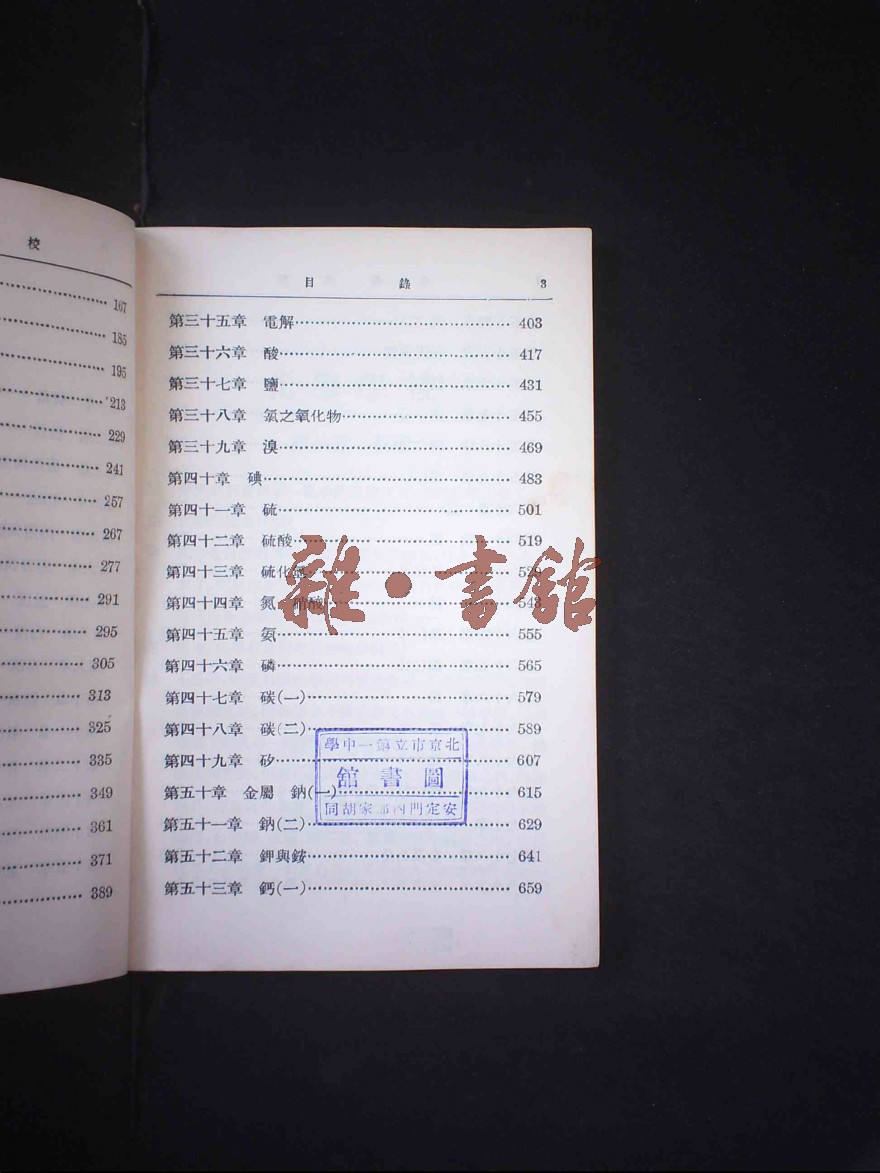 校
167
185
195
213
229
241
257
267
277
291
295
305
313
325
335
349
361
371
389
目 錄 3
第三十五章 電解 403
第三十六章 酸 417
第三十七章 鹽 431
第三十八章 氯之氧化物 455
第三十九章 溴 469
第四十章 碘 483
第四十一章 硫 501
第四十二章 硫酸 519
第四十三章 硫化 529
第四十四章 氮 硝酸 543
第四十五章 氨 555
第四十六章 磷 565
第四十七章 碳(一) 579
第四十八章 碳(二) 589
第四十九章 矽 607
第五十章 金屬 鈉(一) 615
第五十一章 鈉(二) 629
第五十二章 鉀與銨 641
第五十三章 鈣(一) 659
雜·書館
北京市立第一中學
圖書館
安定門內郎家胡同